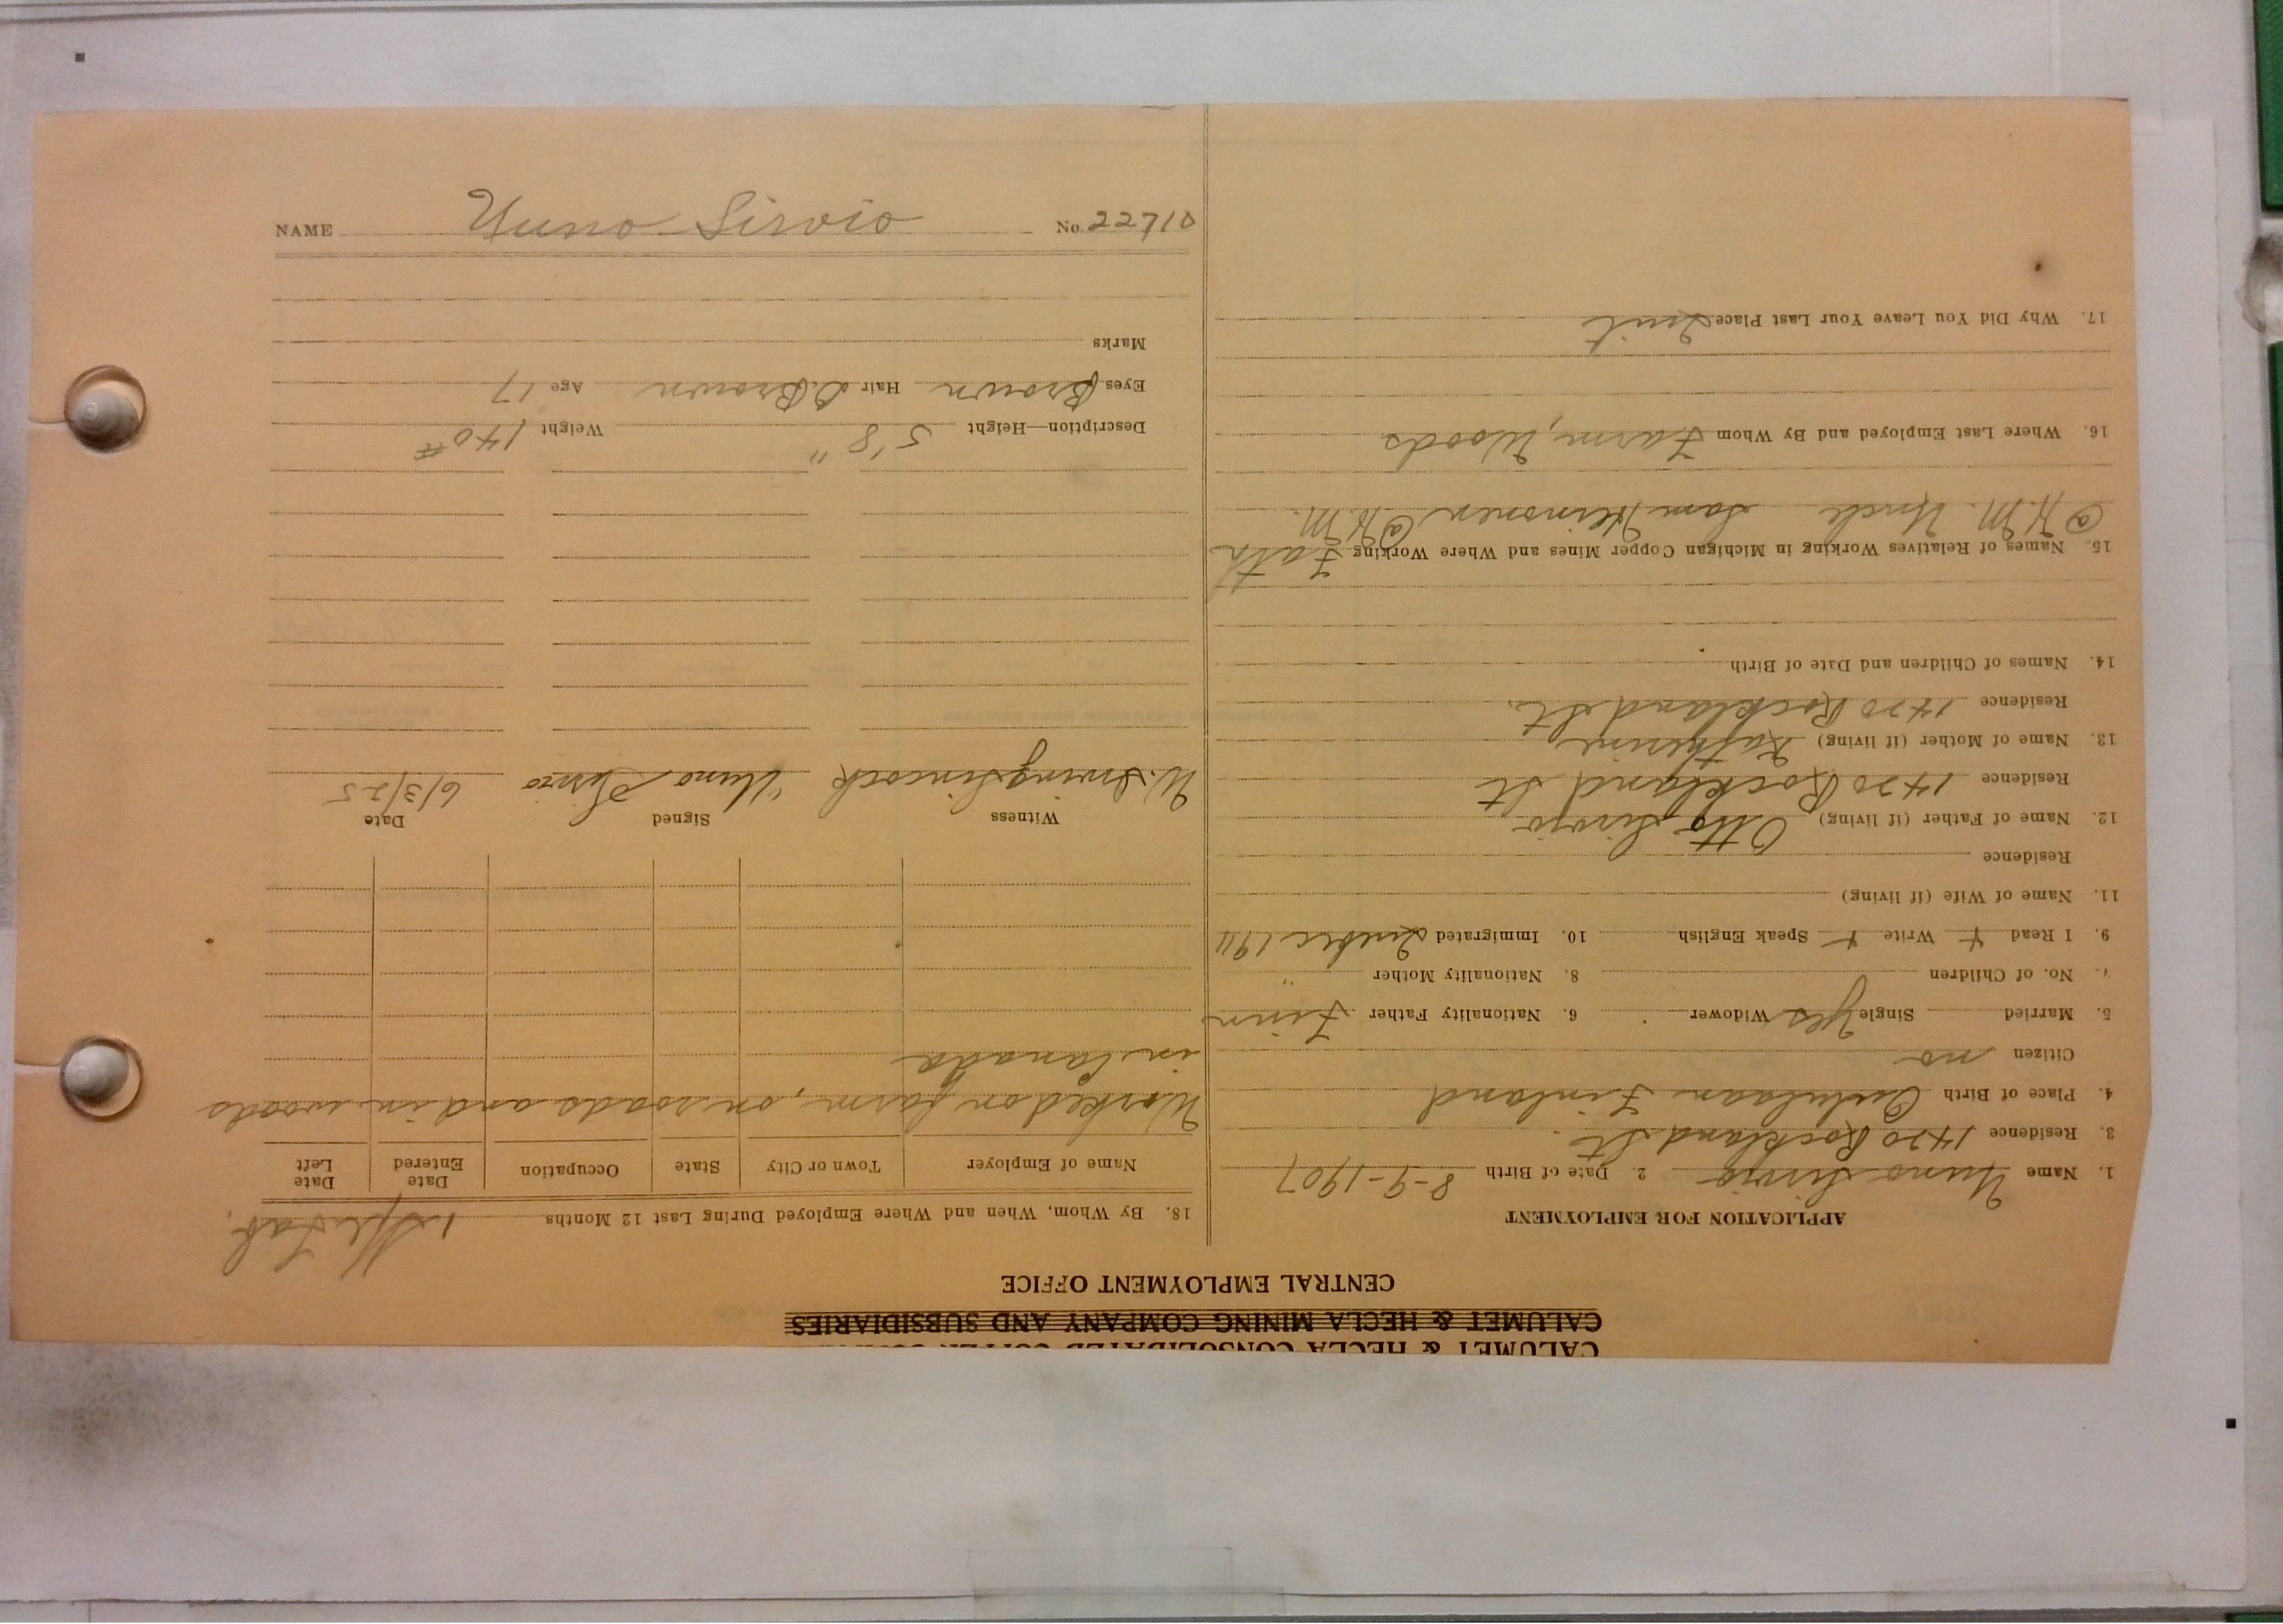 NAME Uuno Sirvio No. 22710
CALUMET & HECLA CONSOLIDATED COPPER
CALUMET & HECLA MINING COMPANY AND SUBSIDIARIES
CENTRAL EMPLOYMENT OFFICE
APPLICATION FOR EMPLOYMENT
1. Name Uuno Sirvio 2. Date of Birth 8-9-1907
3. Residence 1470 Rockland St.
4. Place of Birth Finland
Citizen no
5. Married Single Yes Widower 6. Nationality Father Finn
7. No. of Children 8. Nationality Mother "
9. I Read + Write + Speak English 10. Immigrated Quebec 1911
11. Name of Wife (if living)
Residence
12. Name of Father (if living) Otto Sirvio
Residence 1470 Rockland St
13. Name of Mother (if living) Katherine
Residence 1470 Rockland St.
14. Names of Children and Date of Birth
15. Names of Relatives Working in Michigan Copper Mines and Where Working Fath
@ K.M. Uncle Sam Heinonen @ K.M.
16. Where Last Employed and By Whom Farm, Woods
17. Why Did You Leave Your Last Place Quit
18. By Whom, When and Where Employed During Last 12 Months
Name of Employer Town or City State Occupation Date Entered Date Left
Worked on farm, on roads and in woods
in Canada
Witness Signed Date
W. Irving Sincock Uuno Sirvio 6/3/25
Description—Height 5'8" Weight 140#
Eyes Brown Hair D. Brown Age 17
Marks